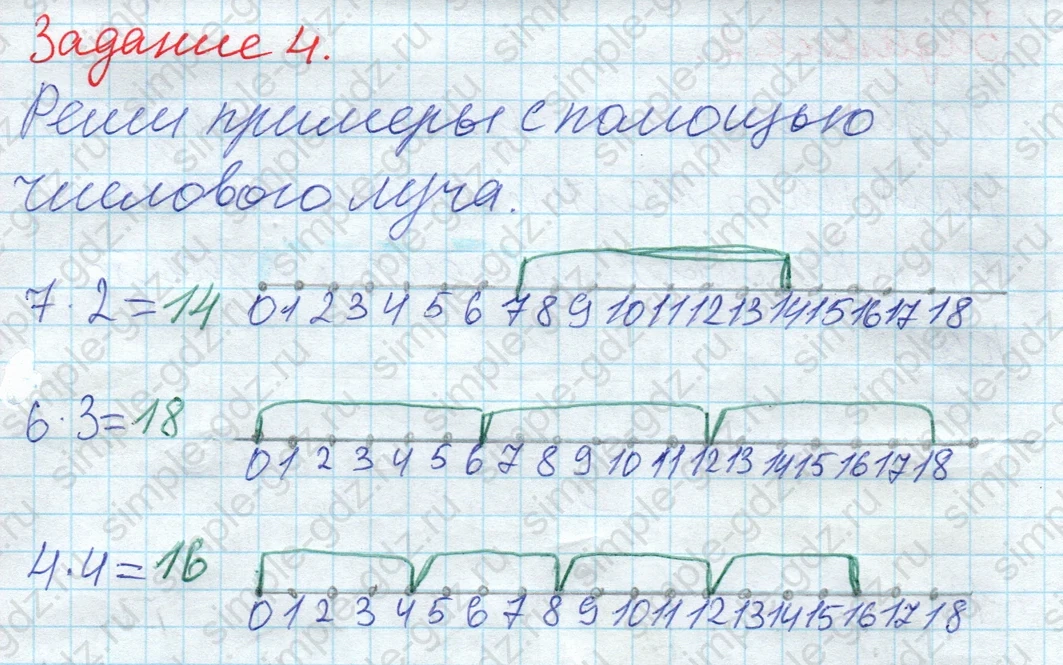 Задание 4.
Реши примеры с помощью
числового луча.
7 · 2 = 14
0 1 2 3 4 5 6 7 8 9 10 11 12 13 14 15 16 17 18
6 · 3 = 18
0 1 2 3 4 5 6 7 8 9 10 11 12 13 14 15 16 17 18
4 · 4 = 16
0 1 2 3 4 5 6 7 8 9 10 11 12 13 14 15 16 17 18
simple-gdz.ru